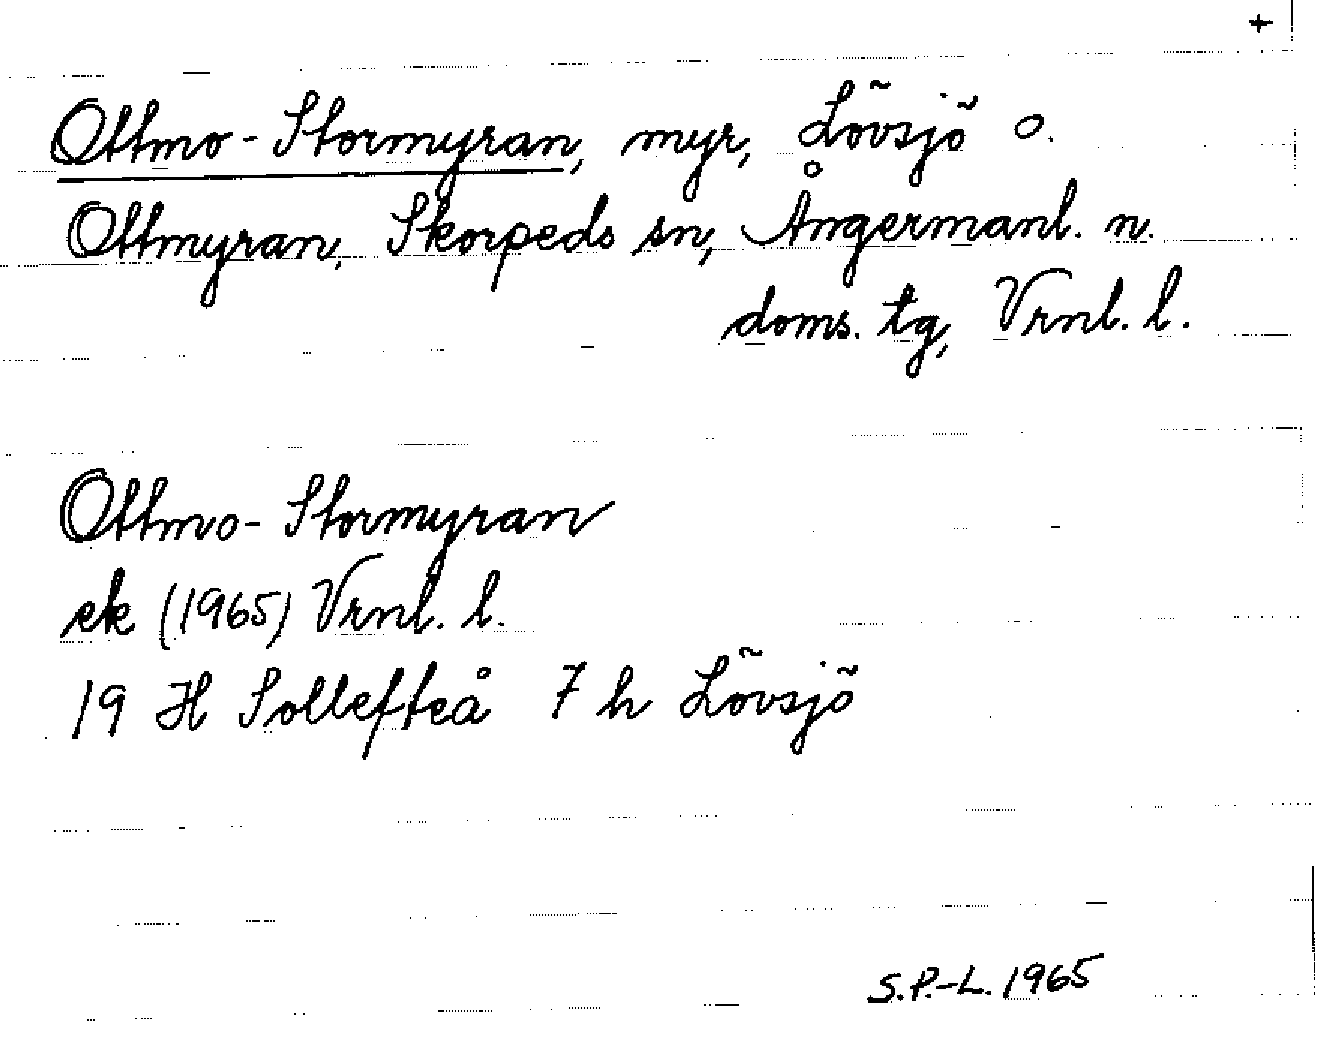 +
Ottmo-Stormyran, myr, Lövsjö o.
Ottmyran, Skorpeds sn, Ångermanl. n.
doms. tg, Vrnl. l.
Ottmo-Stormyran
ek (1965) Vrnl. l.
19 H Sollefteå 7 h Lövsjö
S.P.-L. 1965